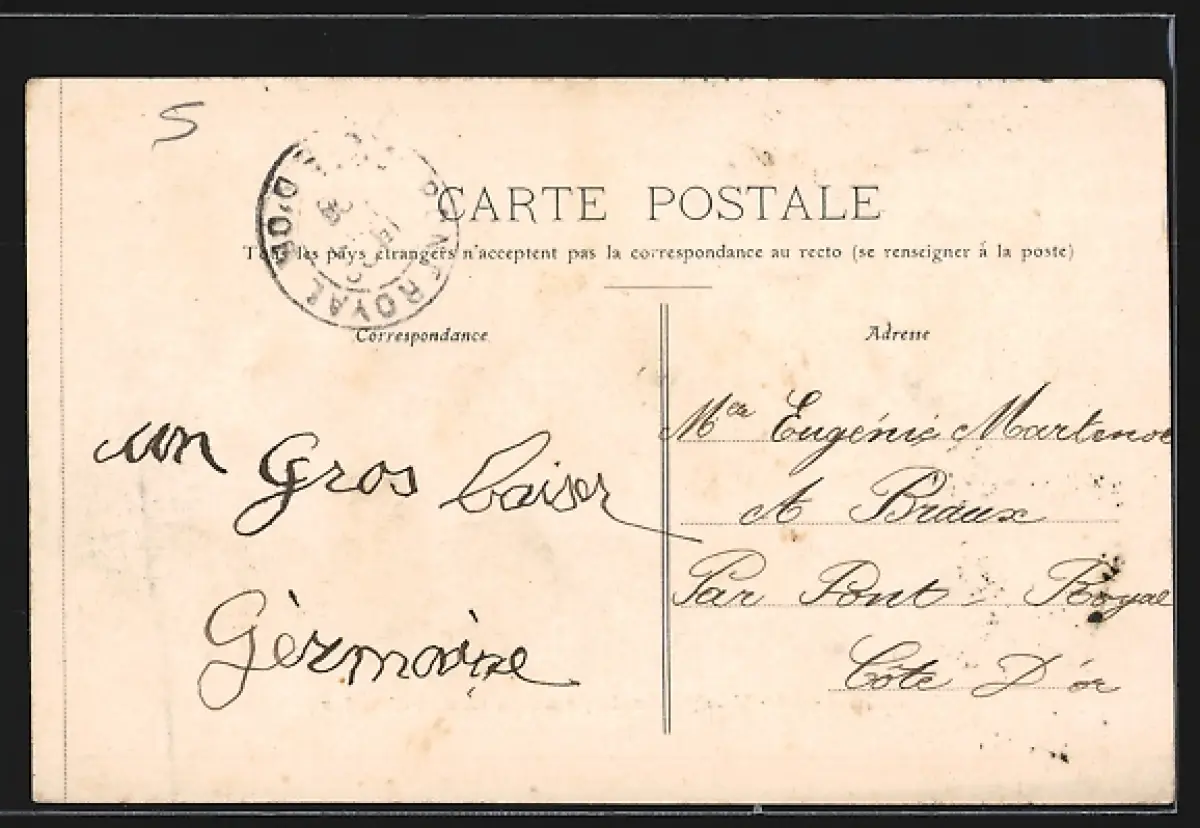 5
CARTE POSTALE
Tous les pays étrangers n'acceptent pas la correspondance au recto (se renseigner á la poste)
ROYAL
D'OR
Correspondance
Adresse
un Gros baiser
Gèrmaine
Mlle Eugénie
A Braux
Par Pont-Royal
Côte D'or